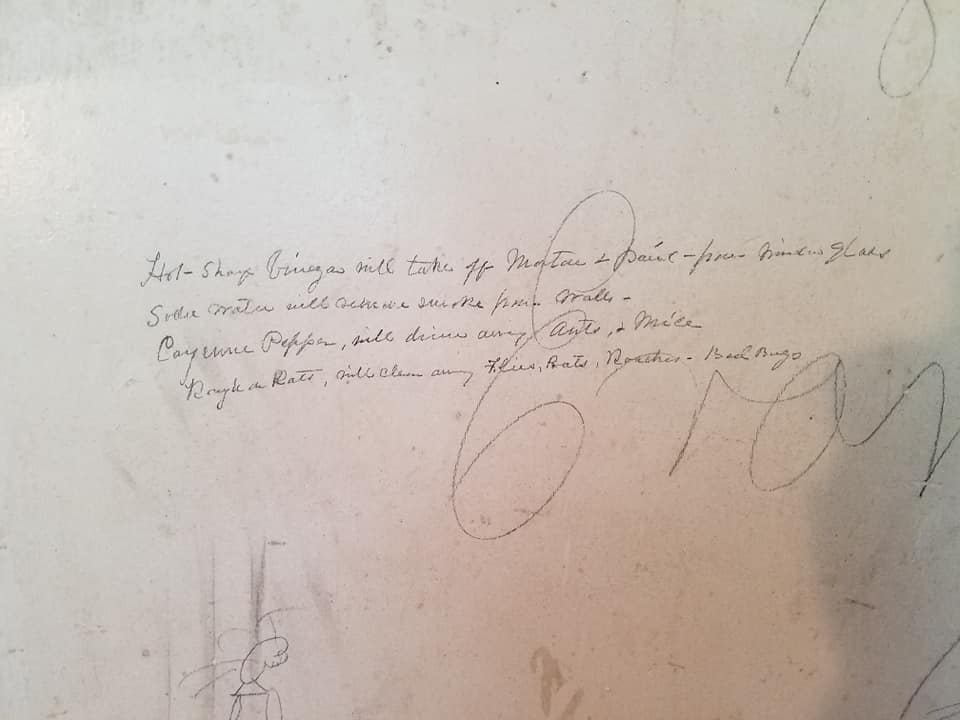 Hot - Sharp Vinegar will take off Mortar & paint - from window glass
Soda water will remove smoke from walls -
Cayenne Pepper, will drive away Ants, & Mice
Rough on Rats, will clear away Flies, Rats, Roaches - Bed Bugs